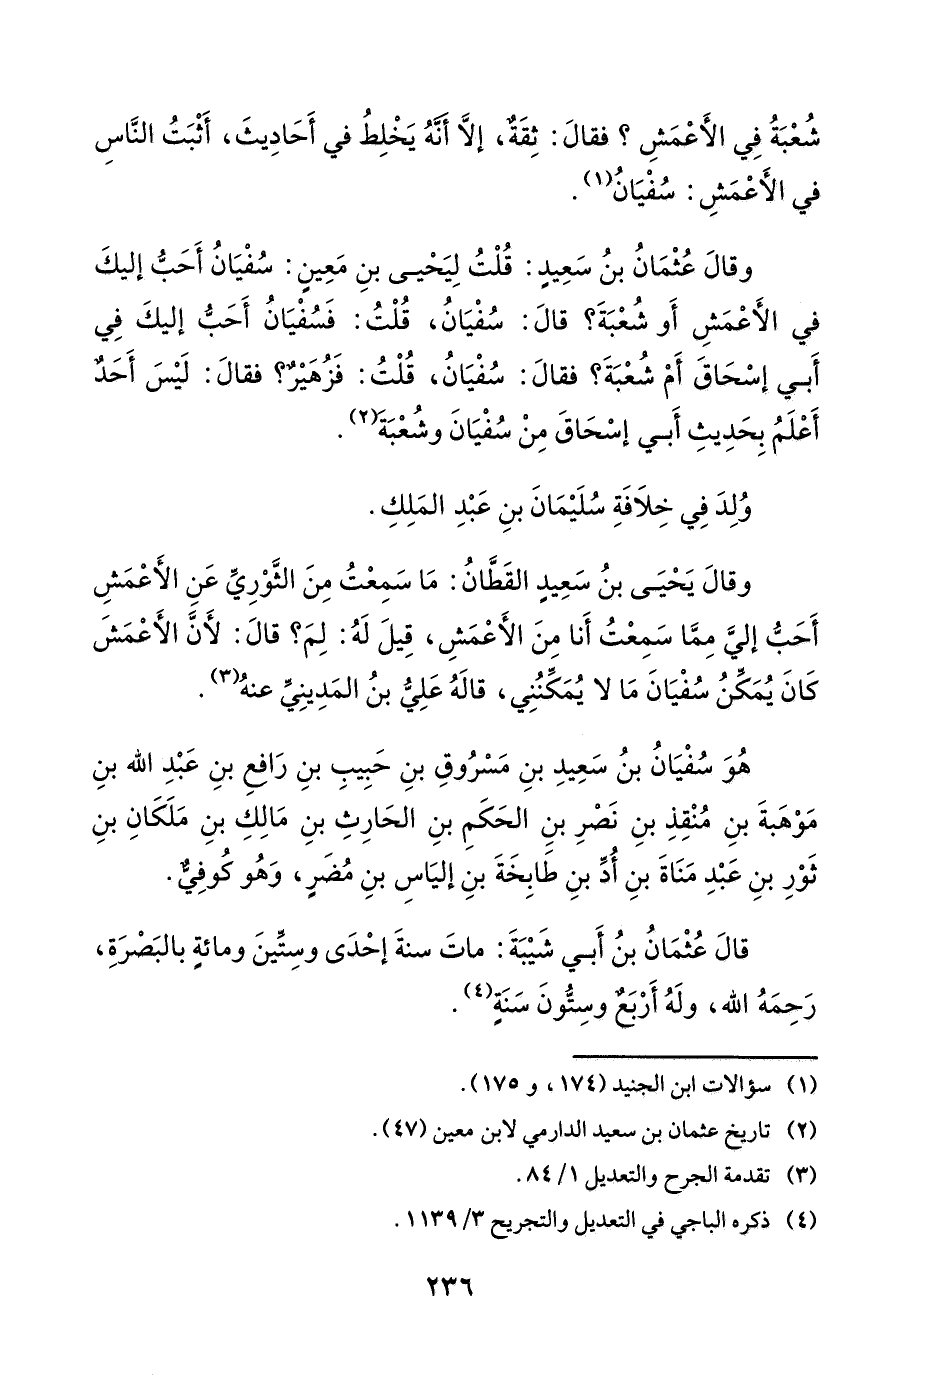 شُعْبَةُ فِي الأَعْمَشِ ؟ فقالَ: ثِقَةٌ، إلاَّ أنَّهُ يَخْلِطُ في أَحَادِيثَ، أَثْبَتُ النَّاسِ
في الأَعْمَشِ: سُفْيَانُ(١).
وقالَ عُثْمَانُ بنُ سَعِيدٍ: قُلْتُ لِيَحْيـى بنِ مَعِينٍ: سُفْيَانُ أَحَبُّ إليكَ
في الأَعْمَشِ أو شُعْبَةَ؟ قالَ: سُفْيَانُ، قُلْتُ: فَسُفْيَانُ أَحَبُّ إليكَ فِي
أَبـي إسْحَاقَ أَمْ شُعْبَةَ؟ فقالَ: سُفْيَانُ، قُلْتُ: فَزُهَيْرٌ؟ فقالَ: لَيْسَ أَحَدٌ
أَعْلَمُ بِحَدِيثِ أَبـي إسْحَاقَ مِنْ سُفْيَانَ وشُعْبَةَ(٢).
وُلِدَ فِي خِلاَفَةِ سُلَيْمَانَ بنِ عَبْدِ المَلِكِ.
وقالَ يَحْيَـى بنُ سَعِيدٍ القَطَّانُ: مَا سَمِعْتُ مِنَ الثَّوْرِيِّ عَنِ الأَعْمَشِ
أَحَبُّ إليَّ مِمَّا سَمِعْتُ أنا مِنَ الأَعْمَشِ، قِيلَ لَهُ: لِمَ؟ قالَ: لأَنَّ الأَعْمَشَ
كَانَ يُمَكِّنُ سُفْيَانَ مَا لا يُمَكِّنُنِي، قالَهُ عَلِيُّ بنُ المَدِينِيِّ عنهُ(٣).
هُوَ سُفْيَانُ بنُ سَعِيدِ بنِ مَسْرُوقِ بنِ حَبِيبِ بنِ رَافِعِ بنِ عَبْدِ الله بنِ
مَوْهَبَةَ بنِ مُنْقِذِ بنِ نَصْرِ بنِ الحَكَمِ بنِ الحَارِثِ بنِ مَالِكِ بنِ مَلَكَانِ بنِ
ثَوْرِ بنِ عَبْدِ مَنَاةَ بنِ أُدِّ بنِ طَابِخَةَ بنِ إليَاسِ بنِ مُضَرٍ، وَهُو كُوفِيٌّ.
قالَ عُثْمَانُ بنُ أَبـي شَيْبَةَ: ماتَ سنةَ إحْدَى وسِتِّينَ ومائةٍ بالبَصْرَةِ،
رَحِمَهُ الله، ولَهُ أَرْبَعٌ وسِتُّونَ سَنَةٍ(٤).
(١) سؤالات ابن الجنيد (١٧٤، و ١٧٥).
(٢) تاريخ عثمان بن سعيد الدارمي لابن معين (٤٧).
(٣) تقدمة الجرح والتعديل ١/ ٨٤.
(٤) ذكره الباجي في التعديل والتجريح ٣/ ١١٣٩.
٢٣٦